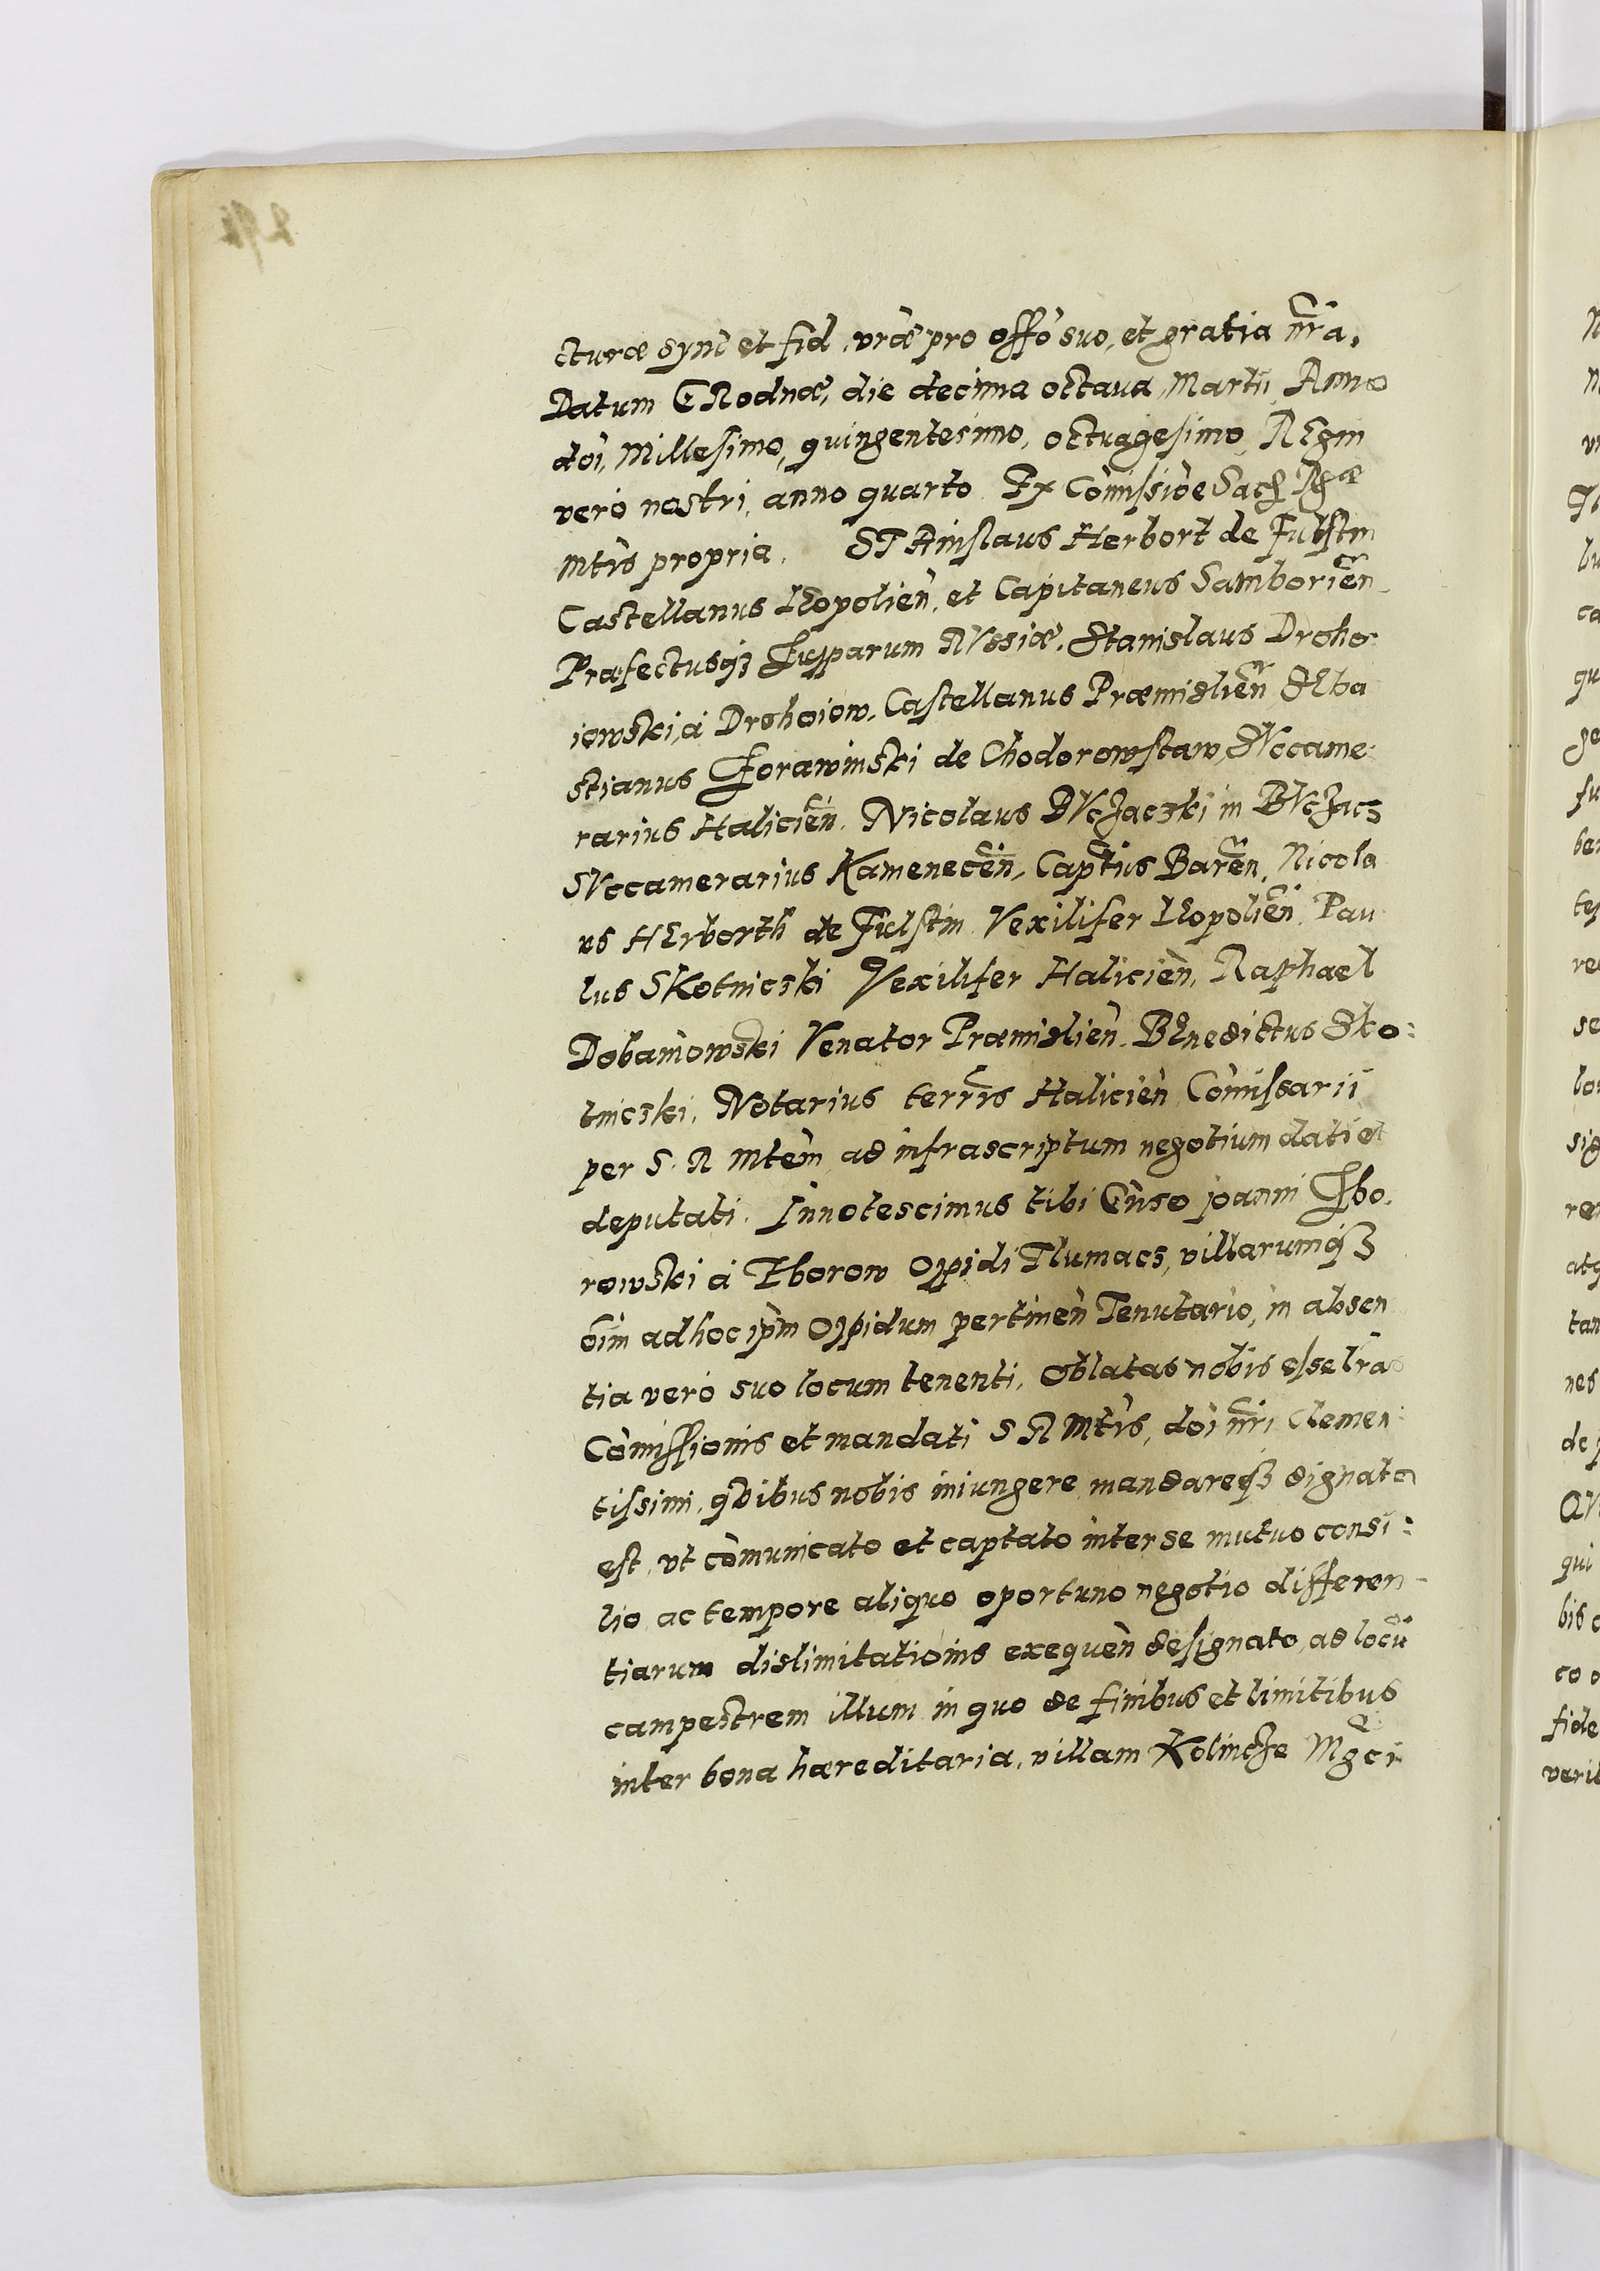 cturæ synt et fid. vræ pro offo suo, et gratia nra.
Datum GRodnæ, die decima octaua Martii Anno
doi, Millesimo, quingentesimo, octuagesimo, REgni
vero nostri, anno quarto. Ex Comissioe Sacȩ Rgæ
Mtis propria. STAnislaus Herbort de Fulstin
Castellanus LEopolien, et Capitaneus Samborien
Præfectusq3 Zupparum RVssiæ. Stanislaus Droho-
iowski, a Drohoiow, Castellanus Præmislien SEba
stianus Zorawinski de Chodorowstaw, SVccame-
rarius Halicien. Nicolaus BVczaczki in BVczacz
SVccamerarius Kamenecen, Captius Baren, Nicola
us HErborth de Fulstin Vexilifer LEopolien Pau
lus SKotniczki Vexilifer Halicien, Raphael
Dobaniowski Venator Præmislien. BEnedictus Sko-
tniczki, Notarius terrris Halicien Comissarii
per S. R Mtem ad infrascriptum negotium dati et
deputati. Innotescimus tibi Gnso joanni Zbo-
rowski a Zborow oppidi Tlumacz, villarumq3
oim ad hoc ipm oppidum pertinen Tenutario, in absen
tia vero suo locum tenenti, Oblatas nobis esse lras
Comissionis et mandati S R Mtis, doi nri Clemen-
tissimi, qbibus nobis iniungere mandareq3 dignata
est, vt comunicato et captato inter se mutuo consi-
lio ac tempore aliquo oportuno negotio differen-
tiarum dislimitationis exequen designato, ad locu
campestrem illum in quo de finibus et limitibus
inter bona hæreditaria, villam Kolincze Mgci